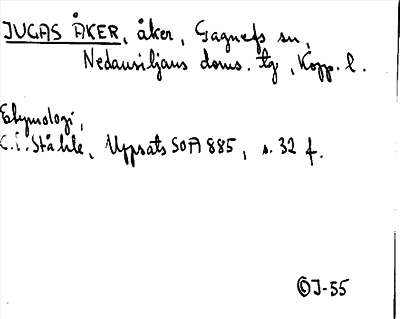 JUGAS ÅKER, åker, Gagnefs sn,
Nedansiljans doms. tg, Kopp. l.
Etymologi,
C.I. Ståhle, Uppsats SOA 885, s. 32 f.
©J-55